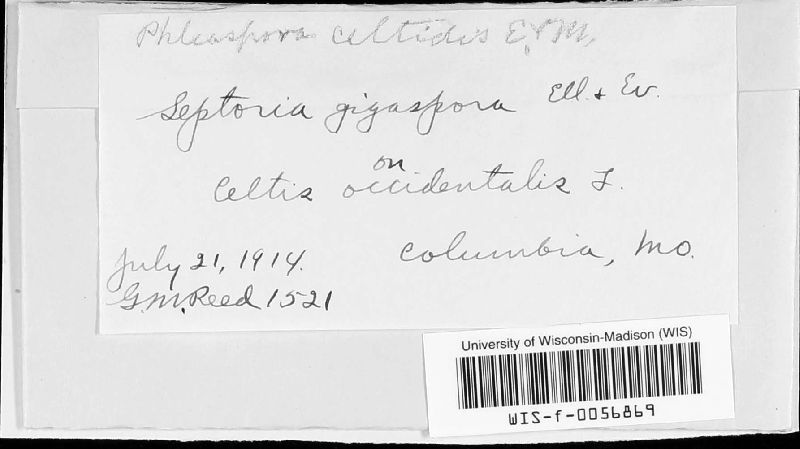 Phleospora celtidis E. & M.
Septoria gigaspora Ell. & Ev.
on
Celtis occidentalis L.
July 21, 1914. Columbia, Mo.
G.M. Reed 1521
University of Wisconsin-Madison (WIS)
WIS-f-0056869